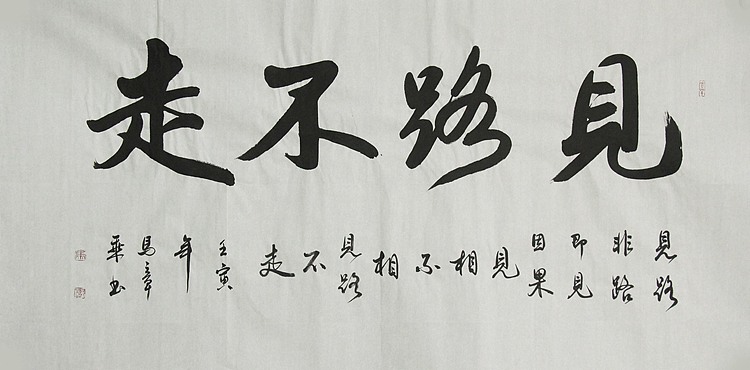 見路不走
見路
非路
即見
因果
見
相
不
相
見路
不
走
壬寅
年
馬章
乘书